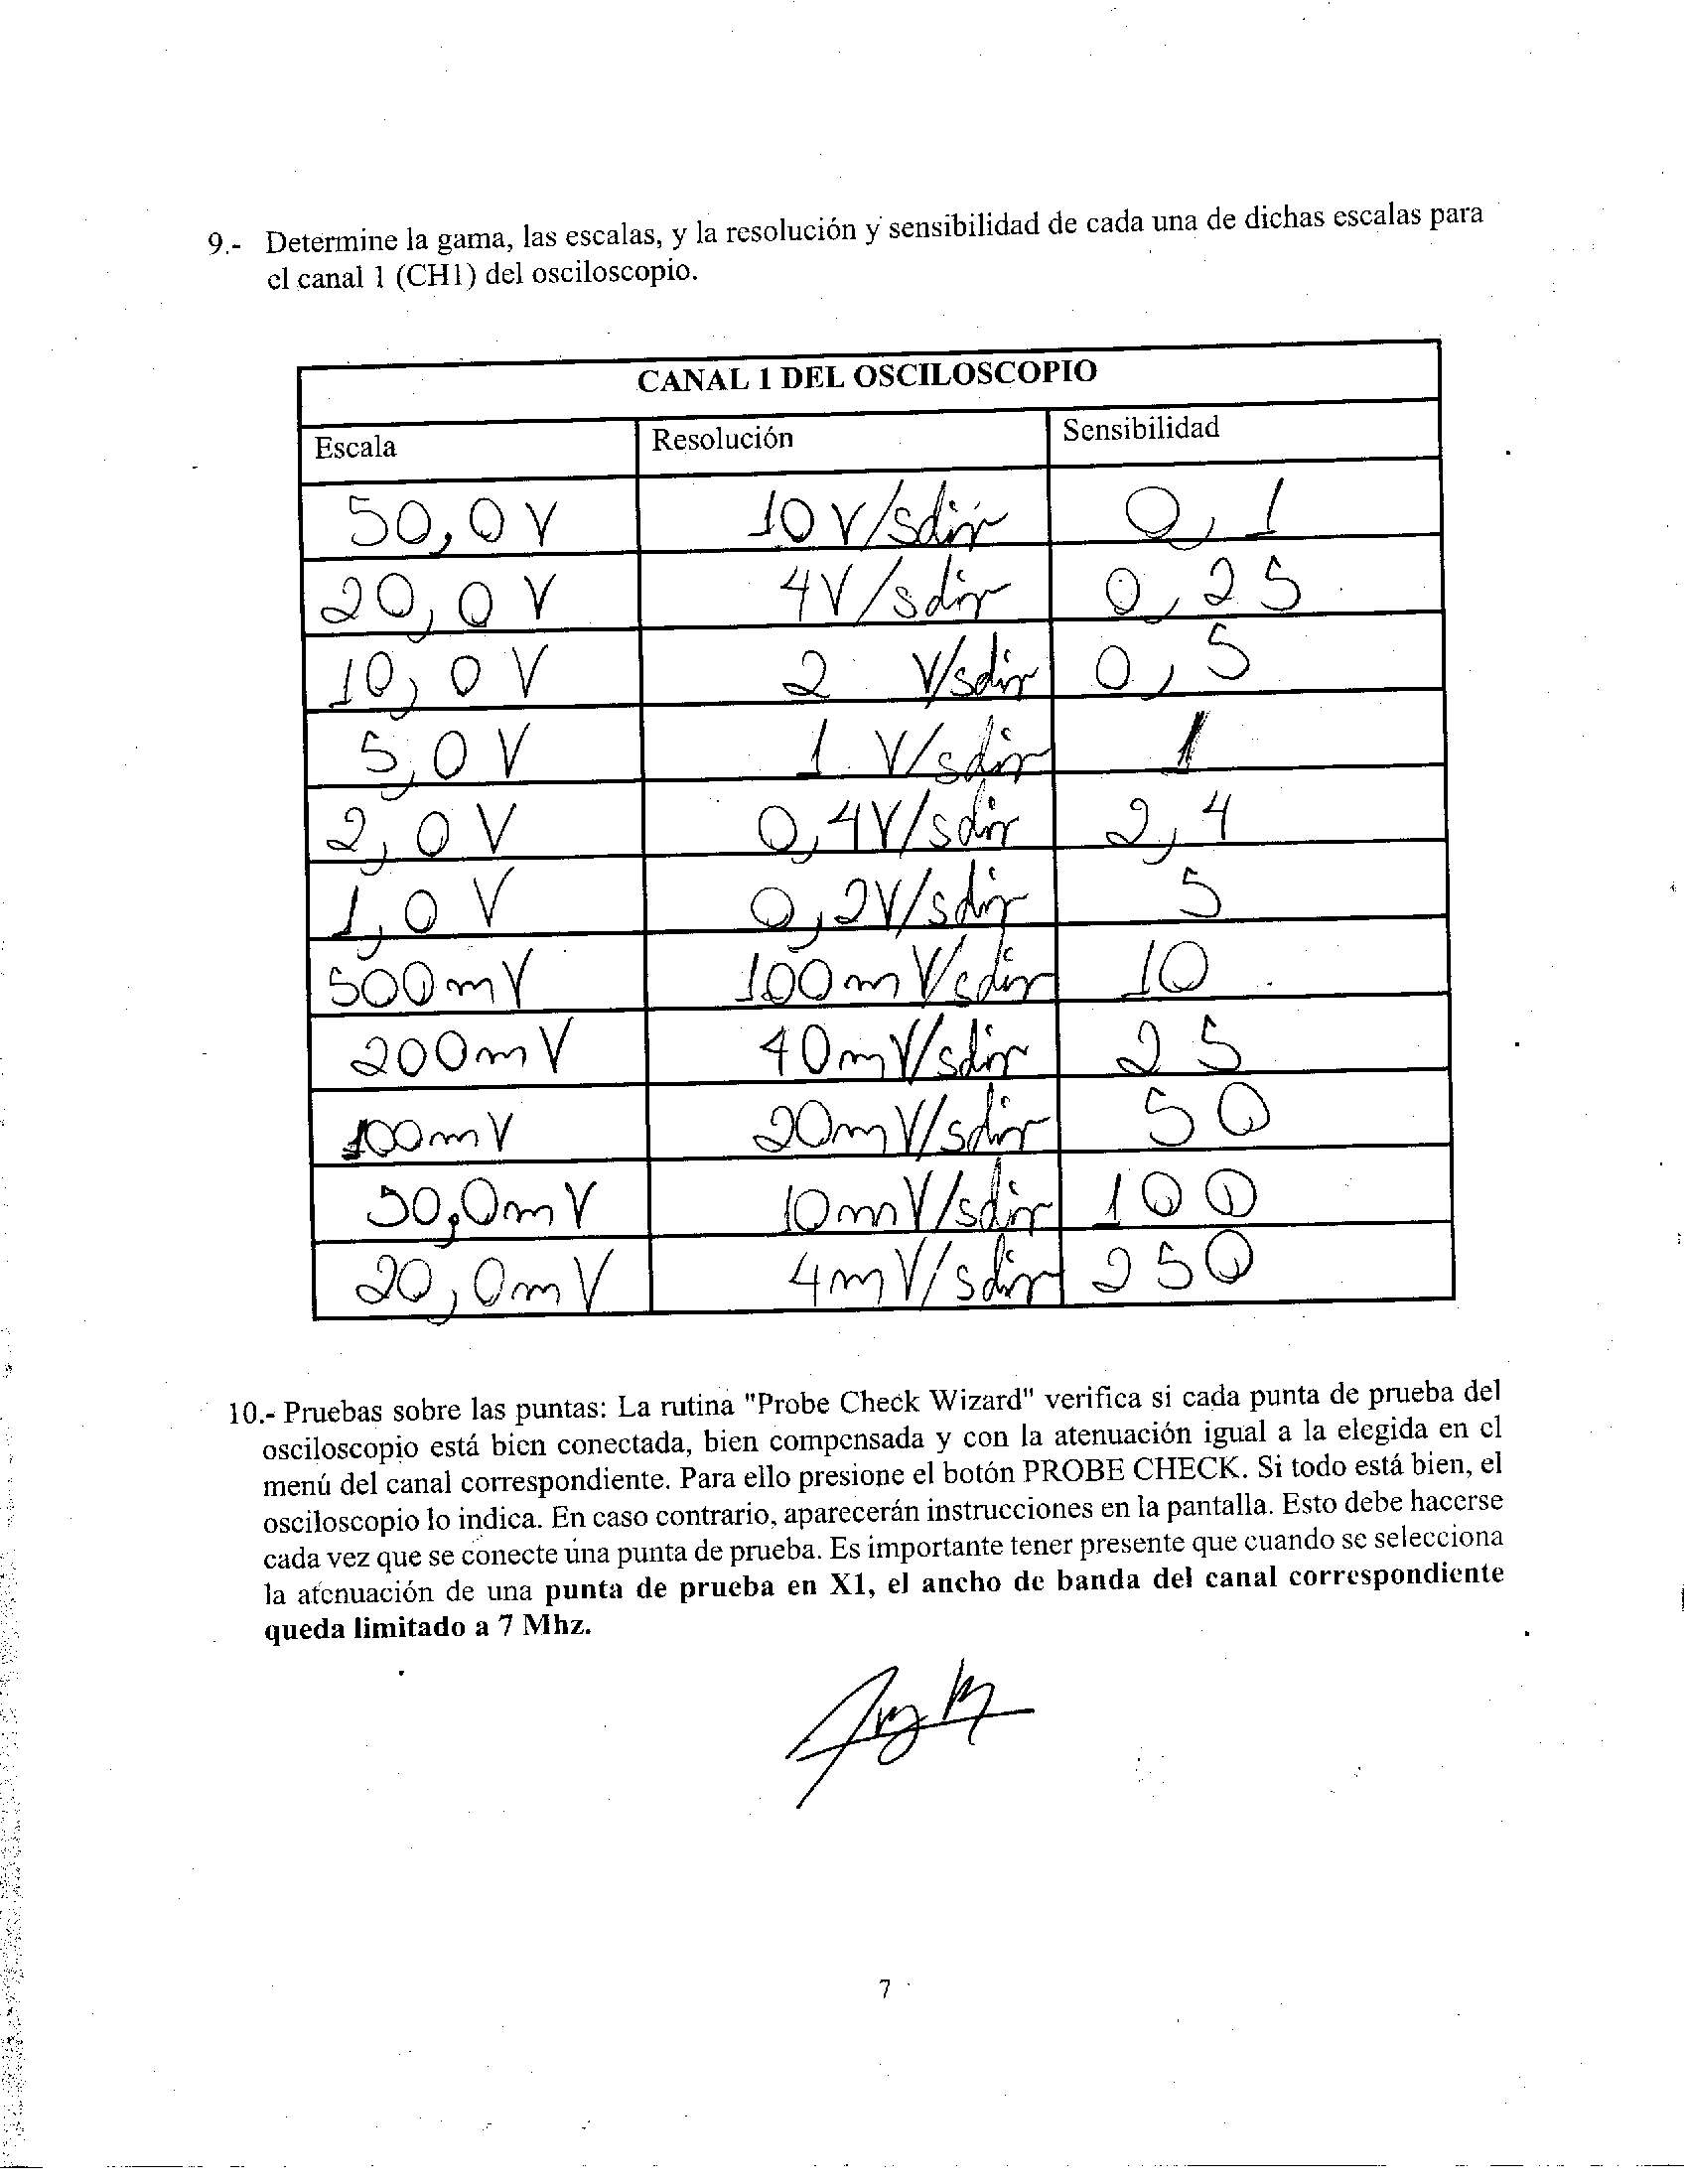 9.- Determine la gama, las escalas, y la resolución y sensibilidad de cada una de dichas escalas para
el canal 1 (CH1) del osciloscopio.
CANAL 1 DEL OSCILOSCOPIO
Escala Resolución Sensibilidad
50,0 V 10 V/sdiv 0,1
20,0 V 4V/sdiv 0,25
10,0 V 2 V/sdiv 0,5
5,0 V 1 V/sdiv 1
2,0 V 0,4V/sdiv 2,4
1,0 V 0,2V/sdiv 5
500mV 100mV/sdiv 10
200mV 40mV/sdiv 25
100mV 20mV/sdiv 50
50,0mV 10mV/sdiv 100
20,0mV 4mV/sdiv 250
10.- Pruebas sobre las puntas: La rutina "Probe Check Wizard" verifica si cada punta de prueba del
osciloscopio está bien conectada, bien compensada y con la atenuación igual a la elegida en el
menú del canal correspondiente. Para ello presione el botón PROBE CHECK. Si todo está bien, el
osciloscopio lo indica. En caso contrario, aparecerán instrucciones en la pantalla. Esto debe hacerse
cada vez que se conecte una punta de prueba. Es importante tener presente que cuando se selecciona
la atenuación de una punta de prueba en X1, el ancho de banda del canal correspondiente
queda limitado a 7 Mhz.
7